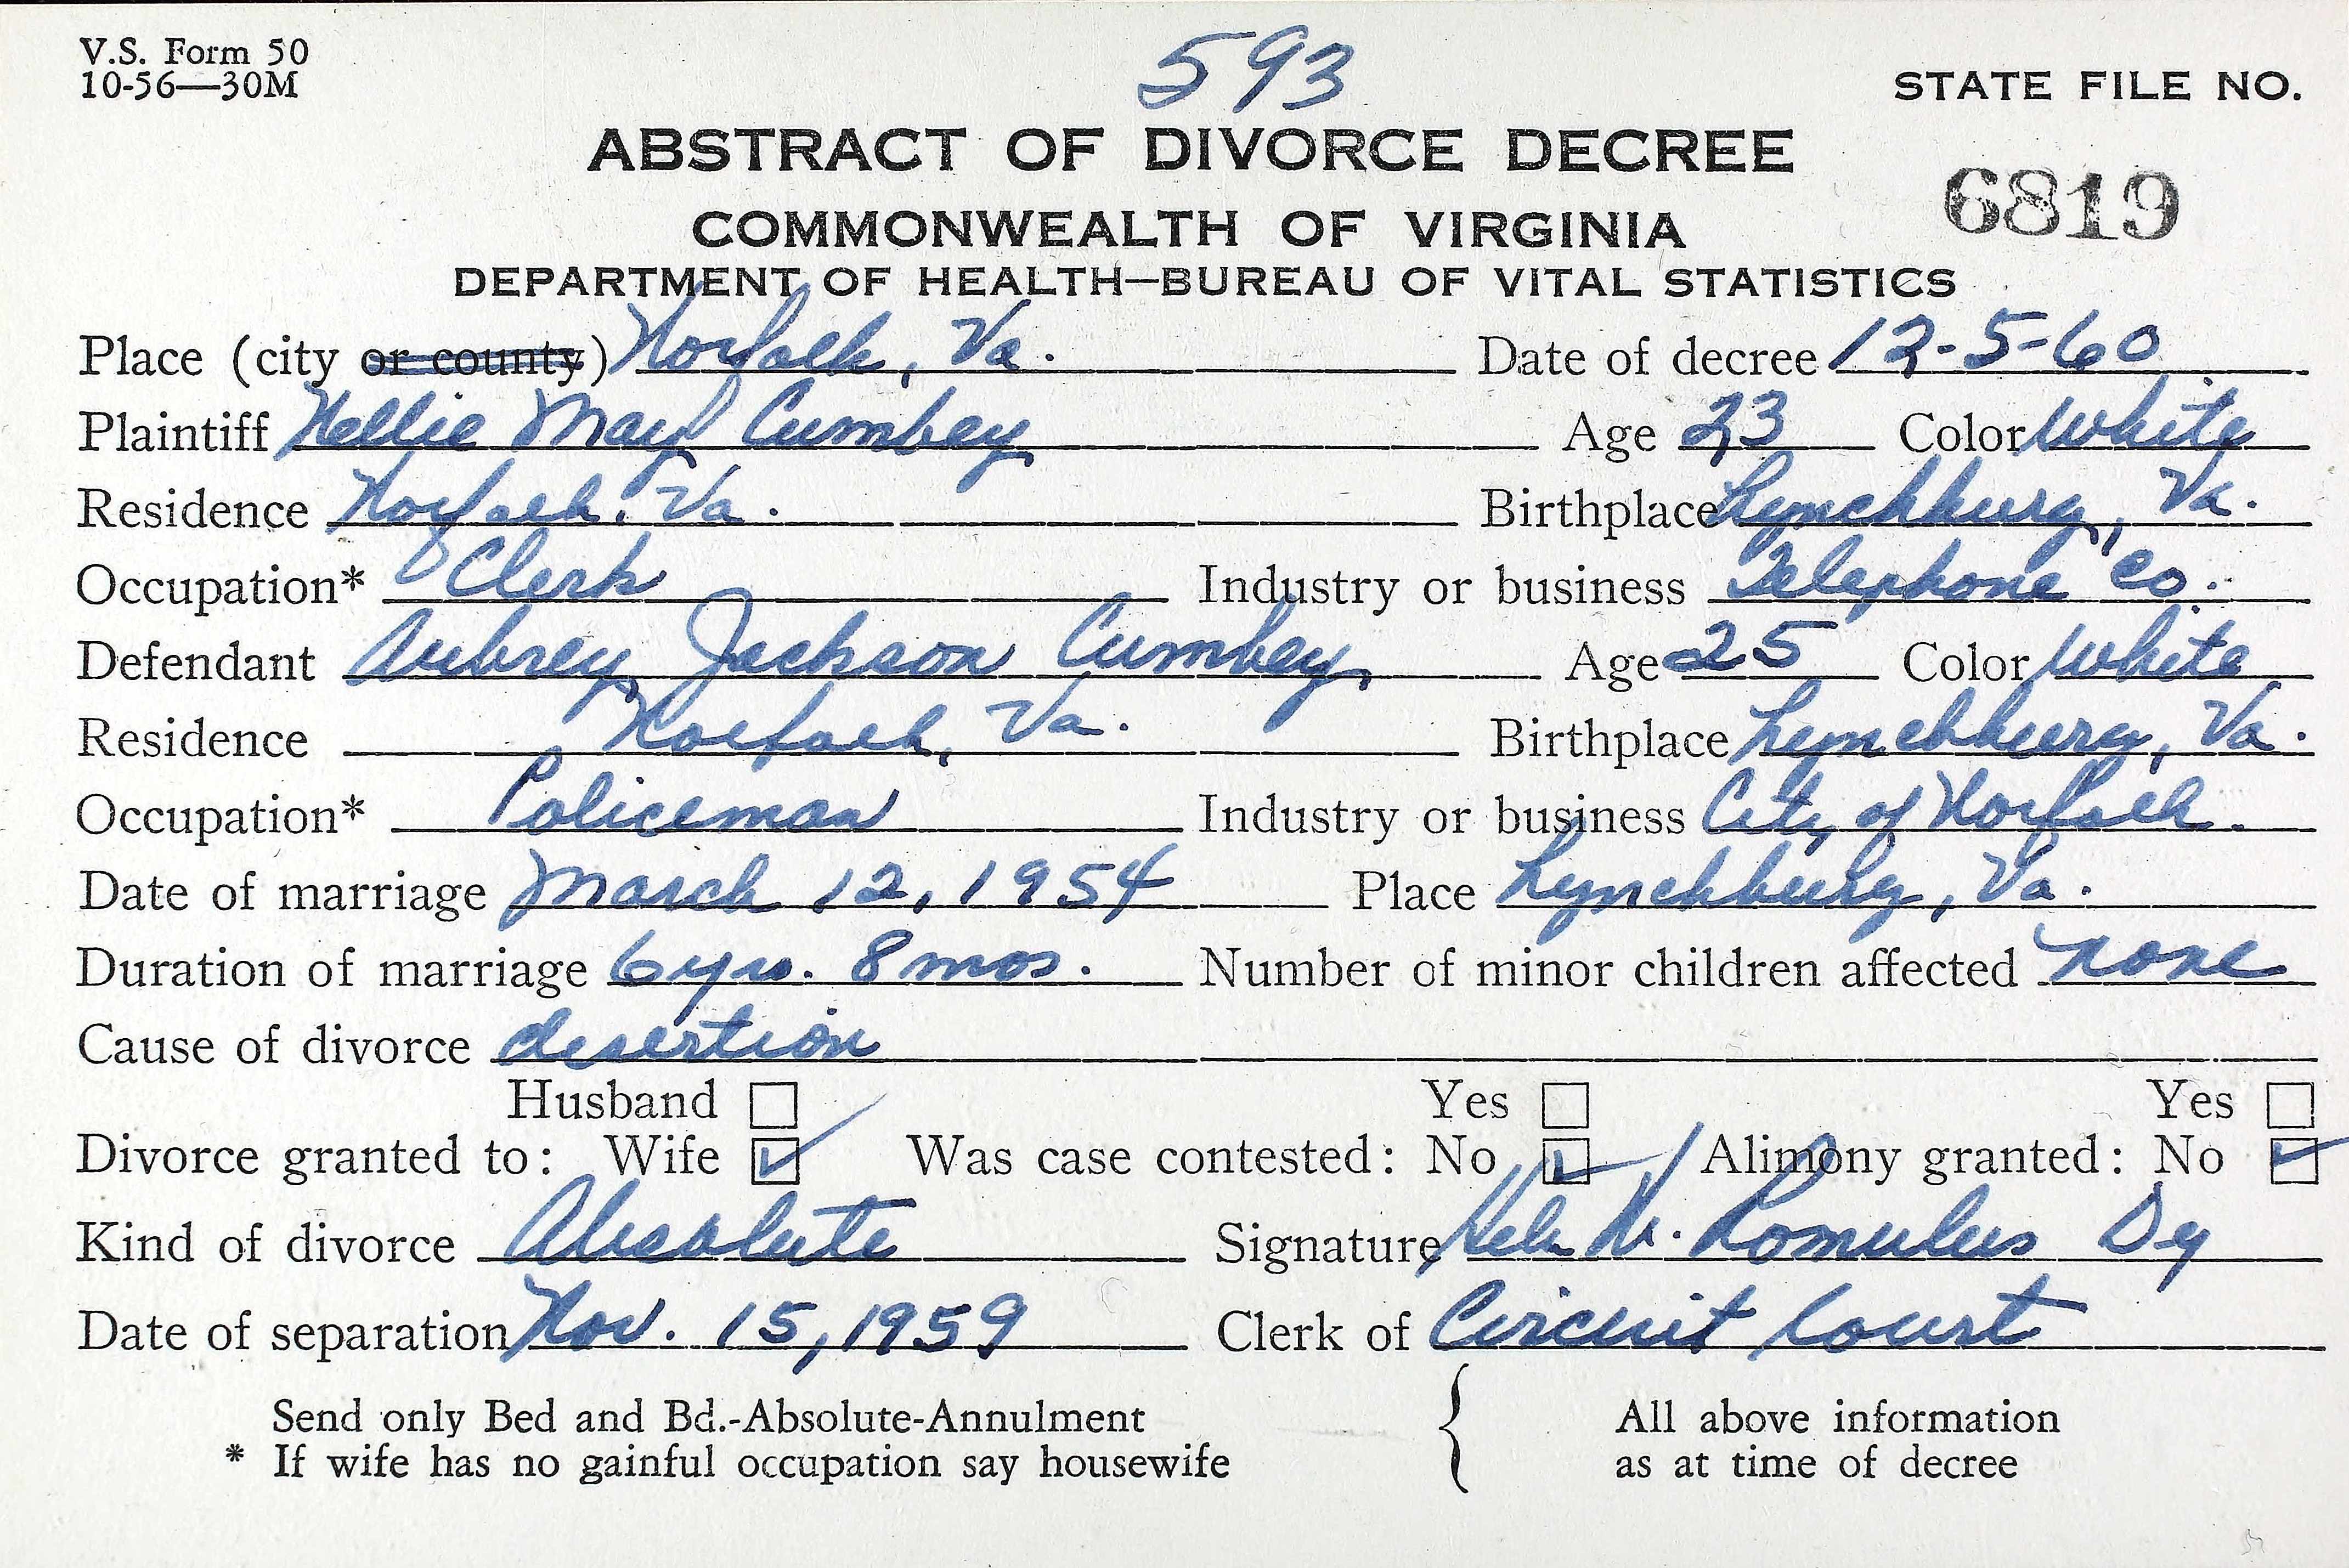 V.S. Form 50
10-56—30M
593
STATE FILE NO.
6819
ABSTRACT OF DIVORCE DECREE
COMMONWEALTH OF VIRGINIA
DEPARTMENT OF HEALTH—BUREAU OF VITAL STATISTICS
Place (city or county) Norfolk, Va. Date of decree 12-5-60
Plaintiff Nellie May Cumbey Age 23 Color White
Residence Norfolk, Va. Birthplace Lynchburg, Va.
Occupation* Clerk Industry or business Telephone Co.
Defendant Aubrey Jackson Cumbey Age 25 Color White
Residence Norfolk, Va. Birthplace Lynchburg, Va.
Occupation* Policeman Industry or business City of Norfolk.
Date of marriage March 12, 1954 Place Lynchburg, Va.
Duration of marriage 6 yrs. 8 mos. Number of minor children affected none
Cause of divorce desertion
Husband Yes Yes
Divorce granted to: Wife ✓ Was case contested: No ✓ Alimony granted: No ✓
Kind of divorce Absolute Signature W. Romulus Dy
Date of separation Nov. 15, 1959 Clerk of Circuit Court
Send only Bed and Bd.-Absolute-Annulment { All above information
* If wife has no gainful occupation say housewife as at time of decree